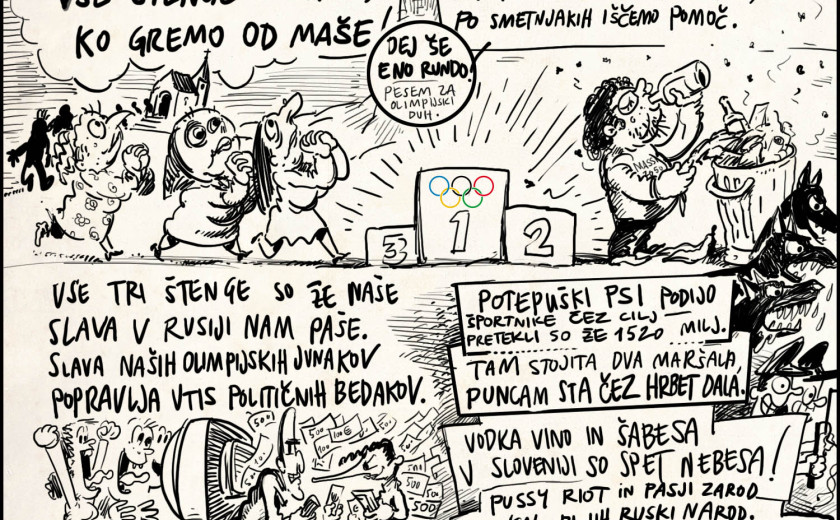 KO GREMO OD MAŠE!
PO SMETNJAKIH IŠČEMO POMOČ.
DEJ ŠE
ENO RUNDO!
PESEM ZA
OLIMPIJSKI
DUH.
3
1
2
VSE TRI ŠTENGE SO ŽE NAŠE
SLAVA V RUSIJI NAM PAŠE.
SLAVA NAŠIH OLIMPIJSKIH JUNAKOV
POPRAVLJA VTIS POLITIČNIH BEDAKOV.
POTEPUŠKI PSI PODIJO
ŠPORTNIKE ČEZ CILJ
PRETEKLI SO ŽE 1520 MILJ.
TAM STOJITA DVA MARŠALA,
PUNCAM STA ČEZ HRBET DALA.
500
500
100€
500
500
VODKA VINO IN ŠABESA
V SLOVENIJI SO SPET NEBESA!
PUSSY RIOT IN PASJI ZAROD
RUSKI NAROD.